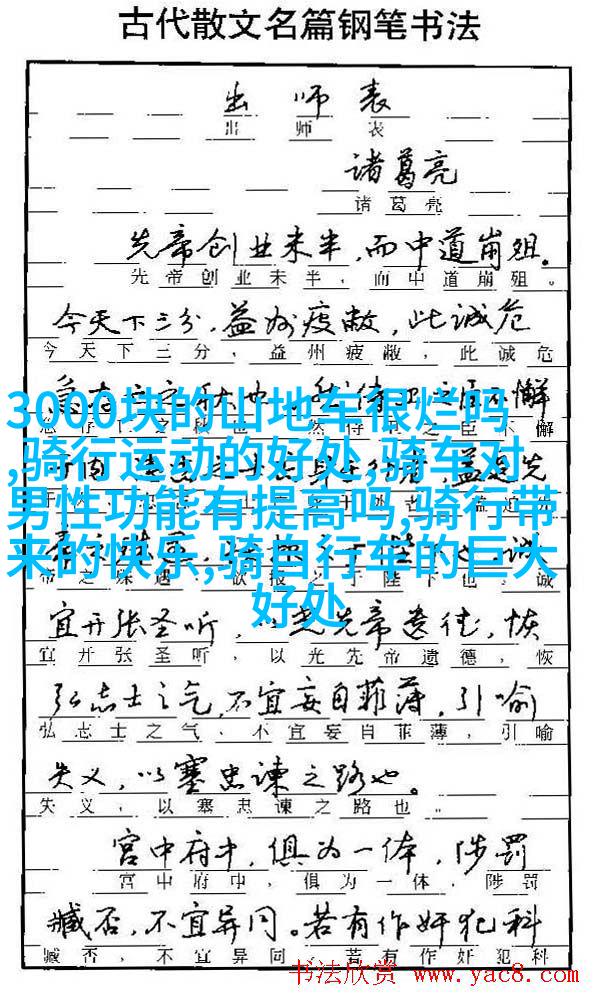 古代散文名篇钢笔书法
出师表
出师表
诸葛亮
诸葛亮
先帝创业未半,而中道崩殂。
先帝创业未半,而中道崩殂。
今天下三分,益州疲敝,此诚危
今天下三分,益州疲敝,此诚危
急
懈
3000块的山地车很烂吗
,骑行运动的好处,骑车对
男性功能有提高吗,骑行带
来的快乐,骑自行车的巨大
好处
诚
宜开张圣听,以光先帝遗德,恢
宜开张圣听,以光先帝遗德,恢
弘志士之气,不宜妄自菲薄,引喻
弘志士之气,不宜妄自菲薄,引喻
失义,以塞忠谏之路也。
失义,以塞忠谏之路也。
宫中府中,俱为一体,陟罚
宫中府中,俱为一体,陟罚
臧否,不宜异同。若有作奸犯科
臧否,不宜异同。若有作奸犯科
书法欣赏 www.yac8.com